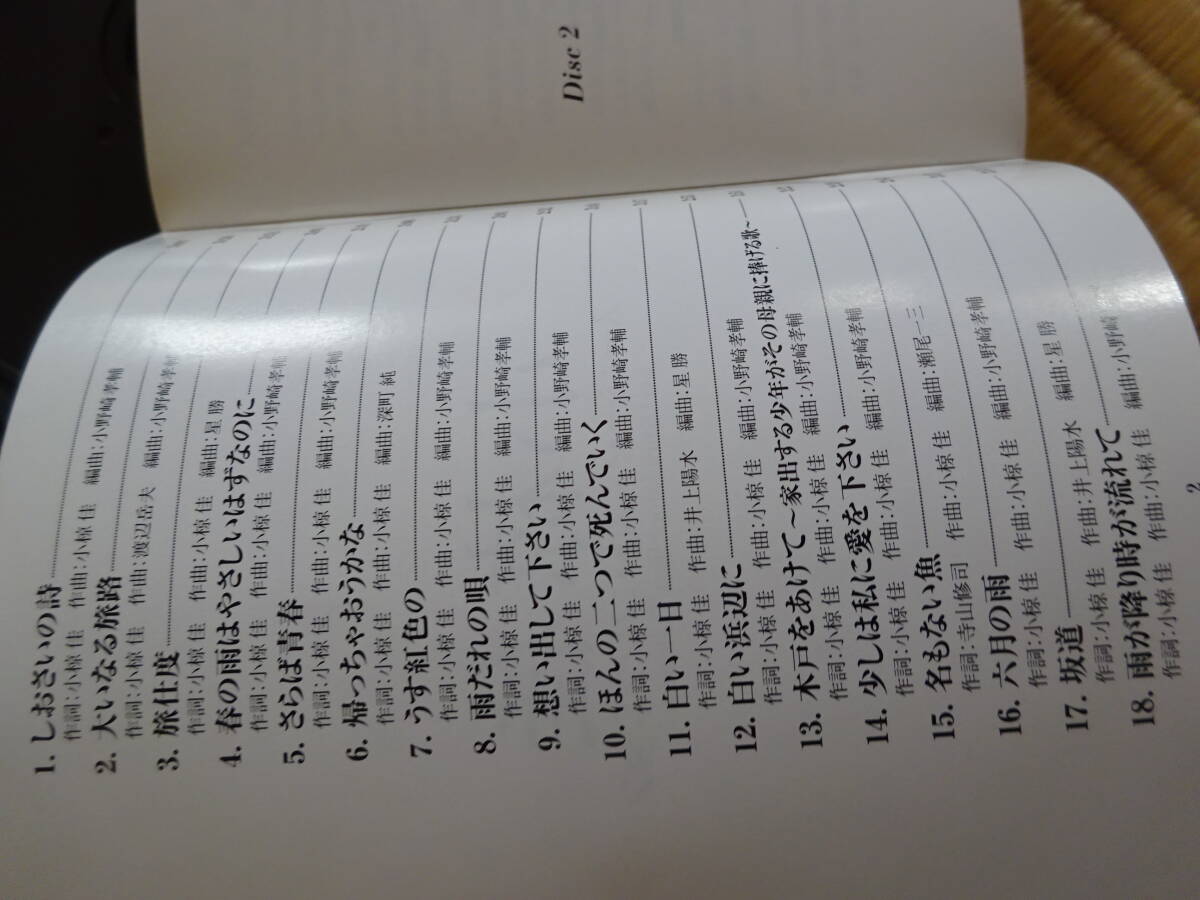 Disc 2
1. しおさいの詩
作詞:小椋 佳 作曲:小椋 佳 編曲:小野崎孝輔
2. 大いなる旅路
作詞:小椋 佳 作曲:渡辺岳夫 編曲:小野崎孝輔
3. 旅仕度
作詞:小椋 佳 作曲:小椋 佳 編曲:星 勝
4. 春の雨はやさしいはずなのに
作詞:小椋 佳 作曲:小椋 佳 編曲:小野崎孝輔
5. さらば青春
作詞:小椋 佳 作曲:小椋 佳 編曲:小野崎孝輔
6. 帰っちゃおうかな
作詞:小椋 佳 作曲:小椋 佳 編曲:深町 純
7. うす紅色の
作詞:小椋 佳 作曲:小椋 佳 編曲:小野崎孝輔
8. 雨だれの唄
作詞:小椋 佳 作曲:小椋 佳 編曲:小野崎孝輔
9. 想い出して下さい
作詞:小椋 佳 作曲:小椋 佳 編曲:小野崎孝輔
10. ほんの二つで死んでいく
作詞:小椋 佳 作曲:小椋 佳 編曲:小野崎孝輔
11. 白い一日
作詞:小椋 佳 作曲:井上陽水 編曲:星 勝
12. 白い浜辺に
作詞:小椋 佳 作曲:小椋 佳 編曲:小野崎孝輔
13. 木戸をあけて〜家出する少年がその母親に捧げる歌〜
作詞:小椋 佳 作曲:小椋 佳 編曲:小野崎孝輔
14. 少しは私に愛を下さい
作詞:小椋 佳 作曲:小椋 佳 編曲:小野崎孝輔
15. 名もない魚
作詞:寺山修司 作曲:小椋 佳 編曲:瀬尾一三
16. 六月の雨
作詞:小椋 佳 作曲:小椋 佳 編曲:小野崎孝輔
17. 坂道
作詞:小椋 佳 作曲:井上陽水 編曲:星 勝
18. 雨が降り時が流れて
作詞:小椋 佳 作曲:小椋 佳 編曲:小野崎
2